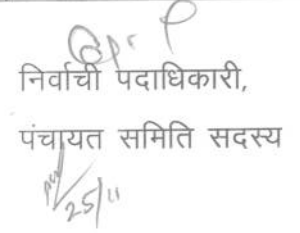 निर्वाची पदाधिकारी,
पंचायत समिति सदस्य
25/11